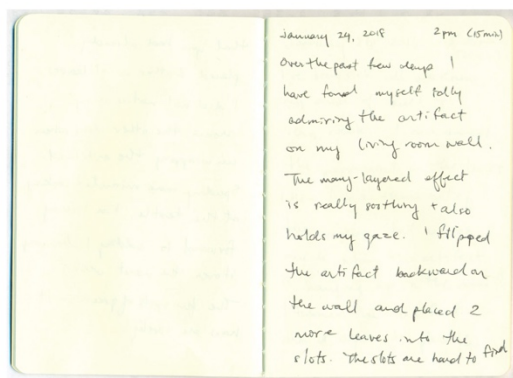 January 24, 2018 2pm (15min)
Over the past few days I
have found myself idly
admiring the artifact
on my living room wall.
The many-layered effect
is really soothing + also
holds my gaze. I flipped
the artifact backward on
the wall and placed 2
more leaves into the
slots. The slots are hard to find